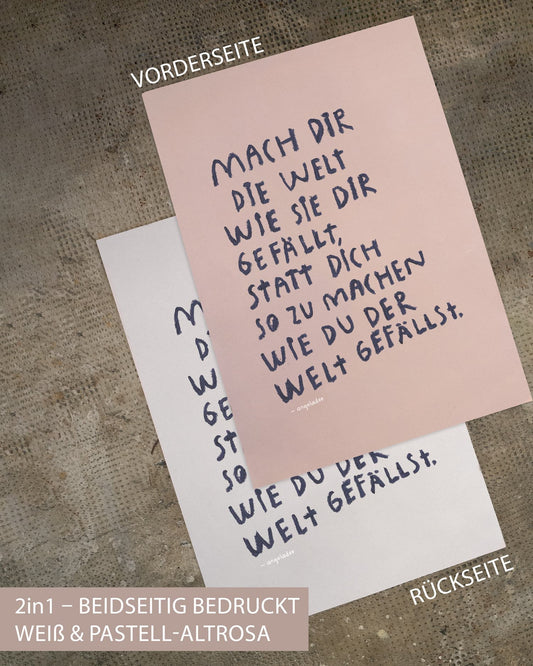 VORDERSEITE
MACH DIR
DIE WELT
WIE SIE DIR
GEFÄLLT,
STATT DICH
SO ZU MACHEN
WIE DU DER
WELT GEFÄLLST.
– angelados
M
D
W
GE
ST
SO
WIE DU DER
WELT GEFÄLLST.
– angelados
RÜCKSEITE
2in1 – BEIDSEITIG BEDRUCKT
WEIß & PASTELL-ALTROSA